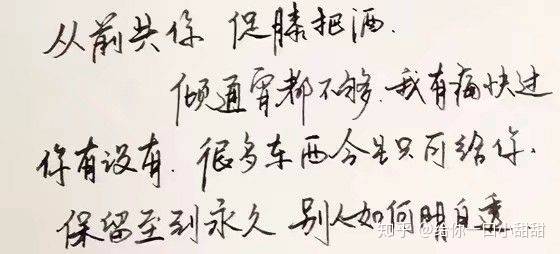 从前共你 促膝把酒.
倾通宵都不够.我有痛快过
你有没有.很多东西今生只可给你.
保留至到永久 别人如何明白透
知乎 @给你一口小甜甜